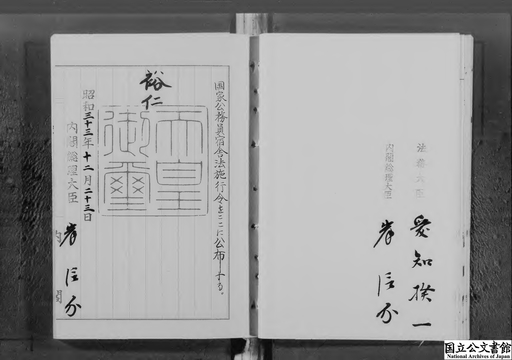 国家公務員宿舎法施行令をここに公布する。
裕仁
天皇
御璽
昭和三十三年十二月二十三日
内閣総理大臣
岸信介
内閣
法務大臣
愛知揆一
内閣総理大臣
岸信介
国立公文書館
National Archives of Japan